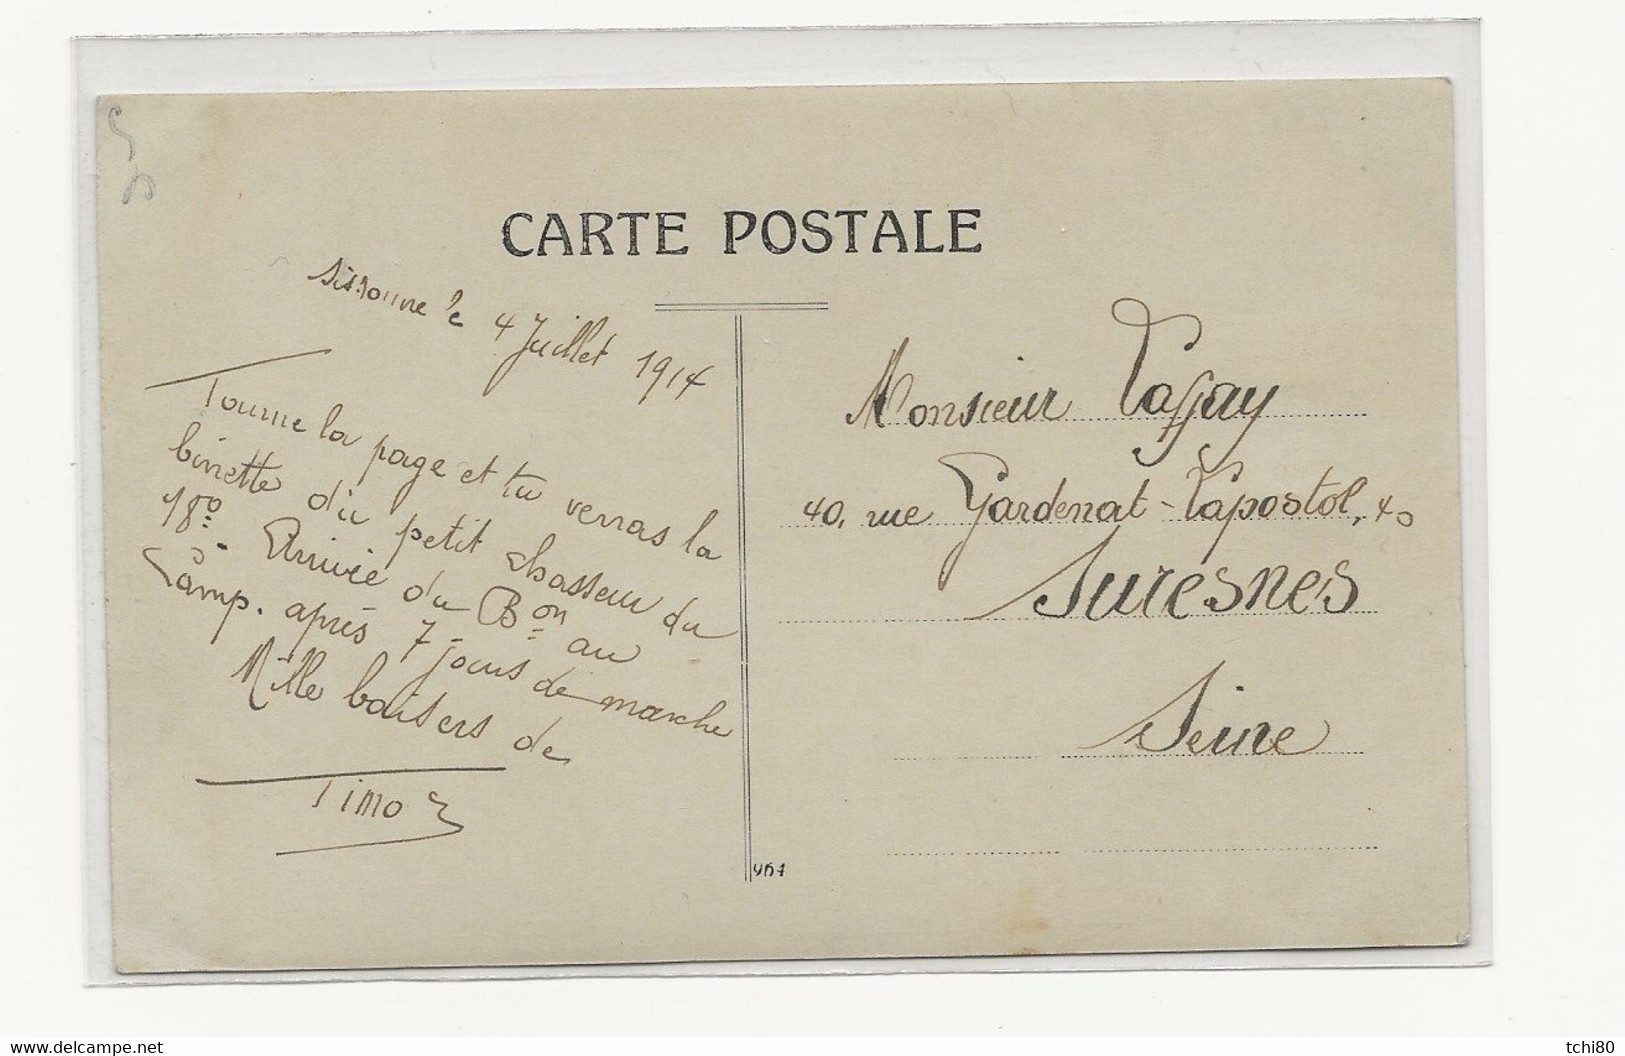 CARTE POSTALE
Sissonne le 4 Juillet 1914
Tourne la page et tu verras la
binette du petit chasseur du
18º. Arrivée du Bon au
Camp. après 7 jours de marche
Mille baisers de
Timo
Monsieur
40, rue Gardenat-Lapostol, 40
Suresnes
Seine
961
www.delcampe.net
tchi80